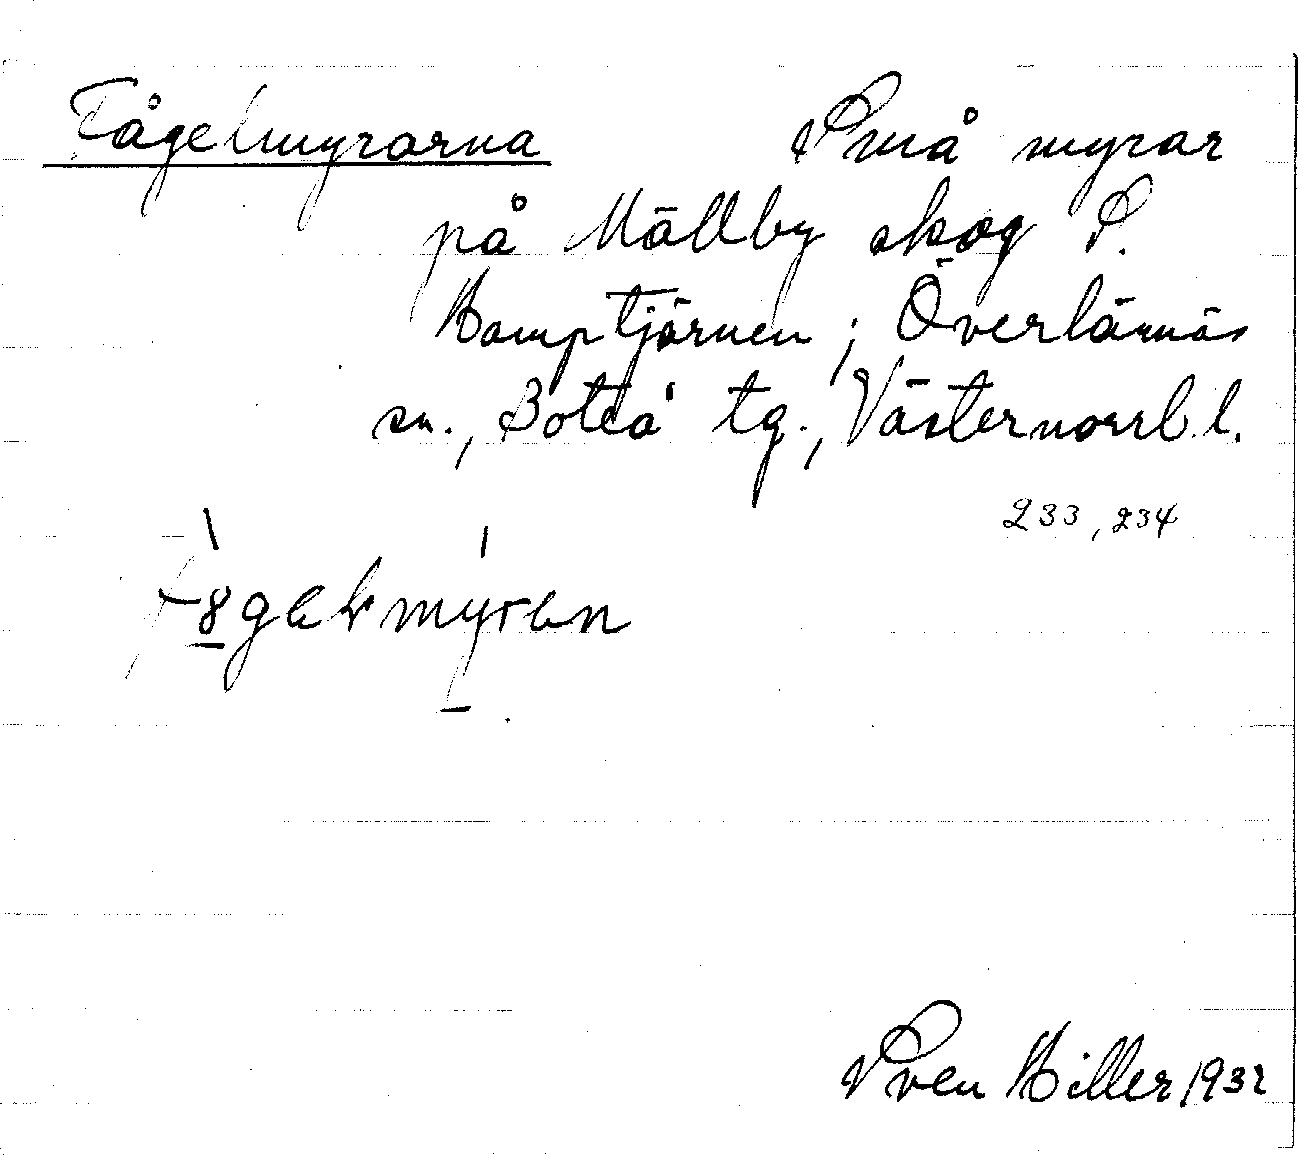 Fågelmyrarna Små myrar
på Mällby skog S.
Hamptjärnen; Överlännäs
sn., Boteå tg., Västernorrl. l.
233, 234
Sven Hiller 1932